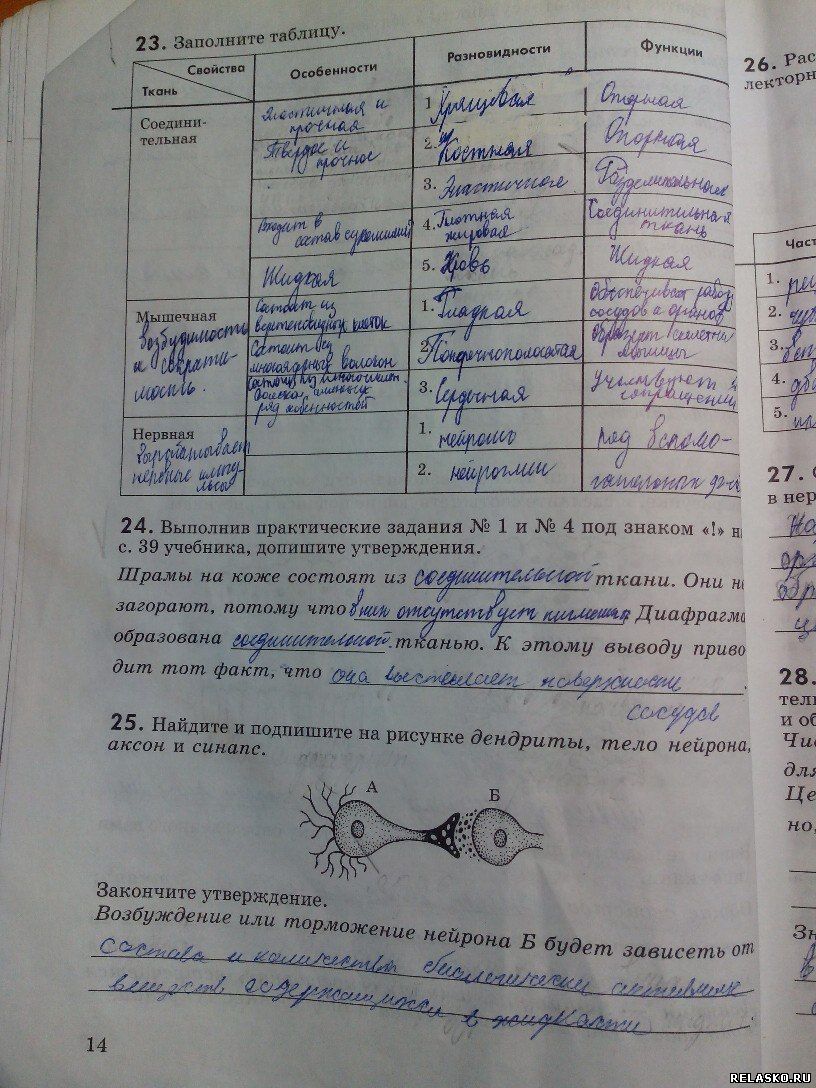 23. Заполните таблицу.
Свойства
Ткань
Особенности
Разновидности
Функции
Соедини-
тельная
Эластичная и
прочная
1. Хрящевая
Опорная
Твёрдое и
прочное
2. Костная
Опорная
3. Эластичное
Входит в
состав сухожилий
4. Плотная
жировая
Соединительная
ткань
Жидкая
5. Кровь
Жидкая
Мышечная
Возбудимость
и сократи-
мость.
Состоит из
веретеновидных клеток
1. Гладкая
Обеспечивает
сосудов и органов
Состоит из
многоядерных волокон
2. Поперечнополосатая
Образует скелетн
мышцы
3. Сердечная
Участвуют
сокращении
Нервная
Вырабатывает
нервные импу-
льсы
1.
под вспомо-
2. нейроглии
24. Выполнив практические задания № 1 и № 4 под знаком «!» н
с. 39 учебника, допишите утверждения.
Шрамы на коже состоят из соединительной ткани. Они н
загорают, потому что в них отсутствует пигмент. Диафрагма
образована соединительной тканью. К этому выводу приво
дит тот факт, что она выстилает поверхности
сосудов
25. Найдите и подпишите на рисунке дендриты, тело нейрона,
аксон и синапс.
А
Б
Закончите утверждение.
Возбуждение или торможение нейрона Б будет зависеть от
состава и количества биологически
веществ содержащихся в жидкости
14
26. Рас
лекторн
Част
1.
2.
3.
4.
5.
27.
в нер
28.
тель
и об
Чис
для
Це
но,
Зн
RELASKO.RU